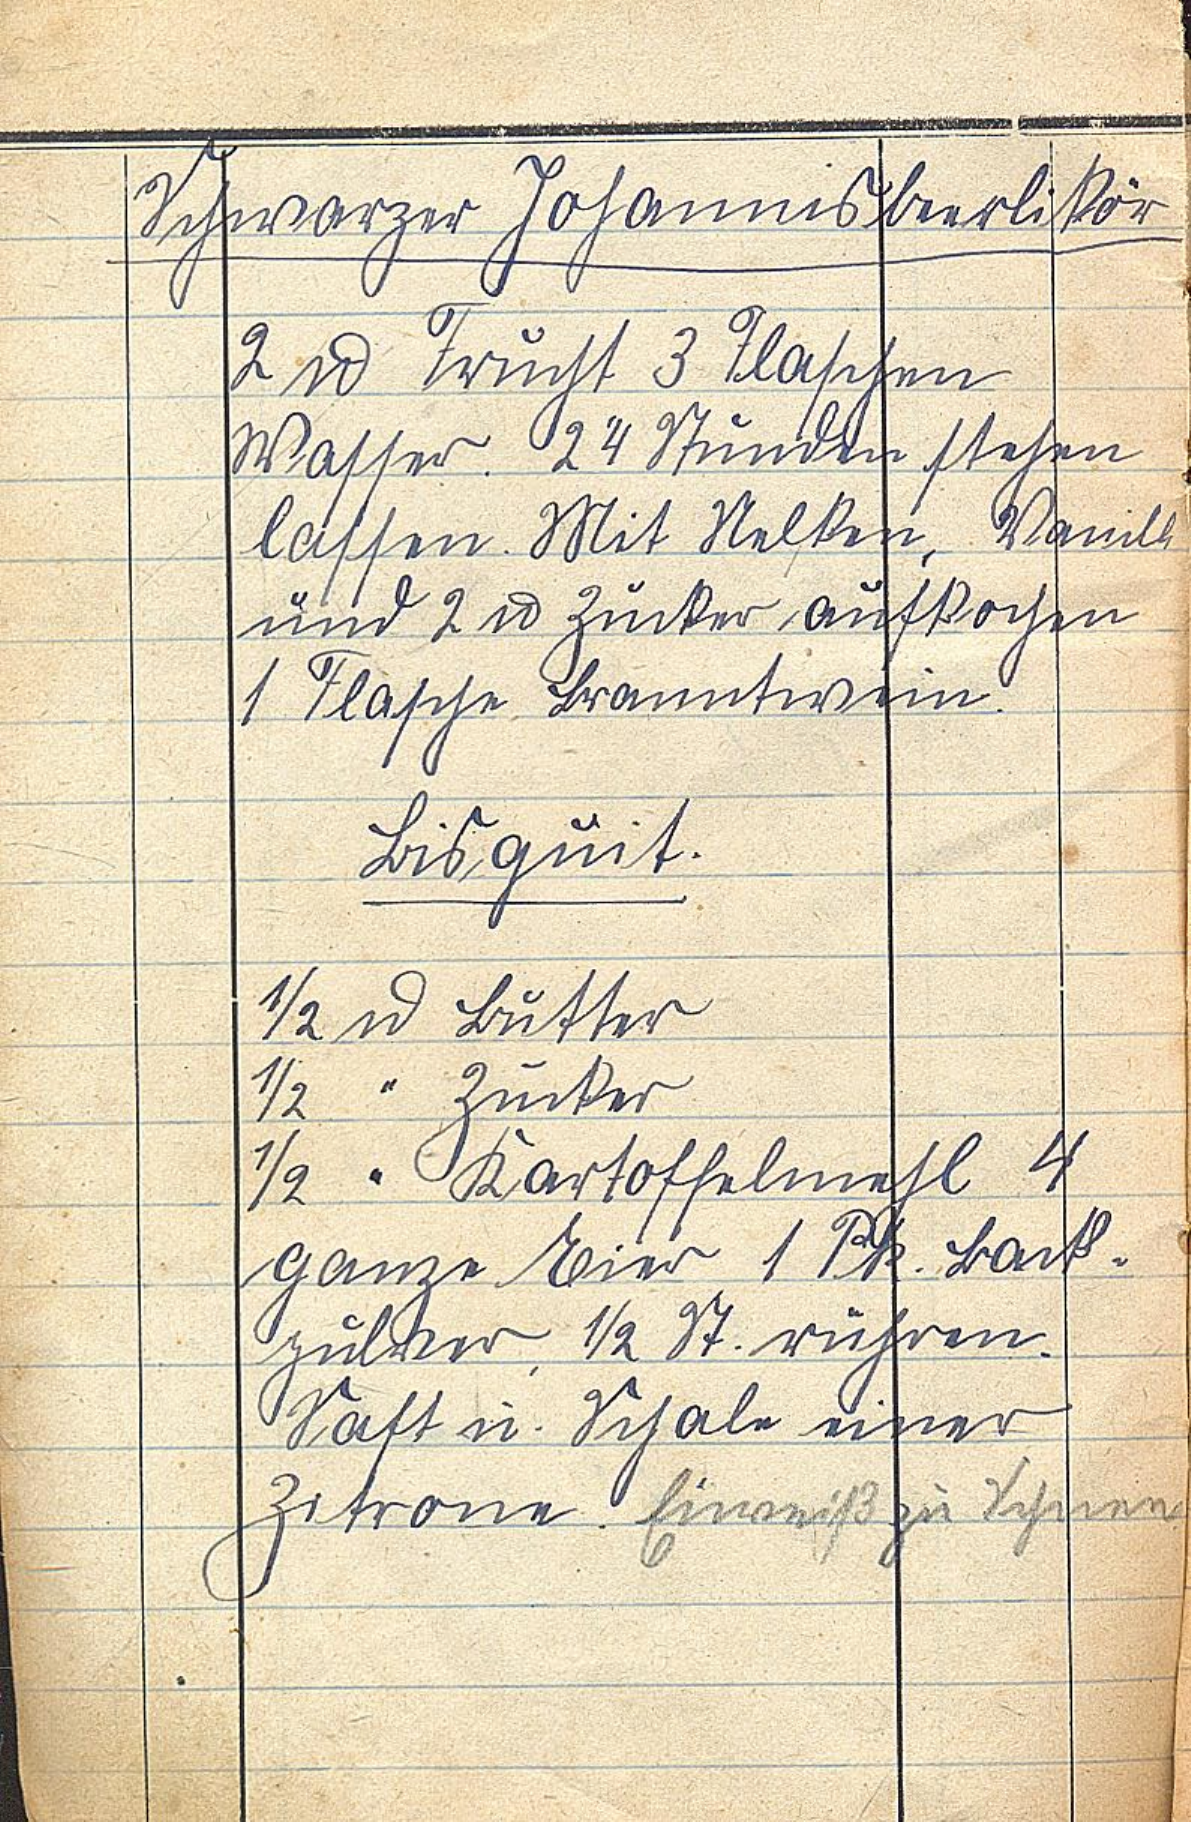 Schwarzer Johannisbeerlikör
2 ℔ Frucht 3 Flaschen
Wasser. 24 Stunden stehen
lassen. Mit Nelken, Vanill
und 2 ℔ Zucker aufkochen
1 Flasche Branntwein.
Bisquit.
1/2 ℔ Butter
1/2 " Zucker
1/2 " Kartoffelmehl 4
ganze Eier 1 Pk. Back-
pulver, 1/2 St. rühren.
Saft u. Schale einer
Zitrone. Eiweiß zu Schnee